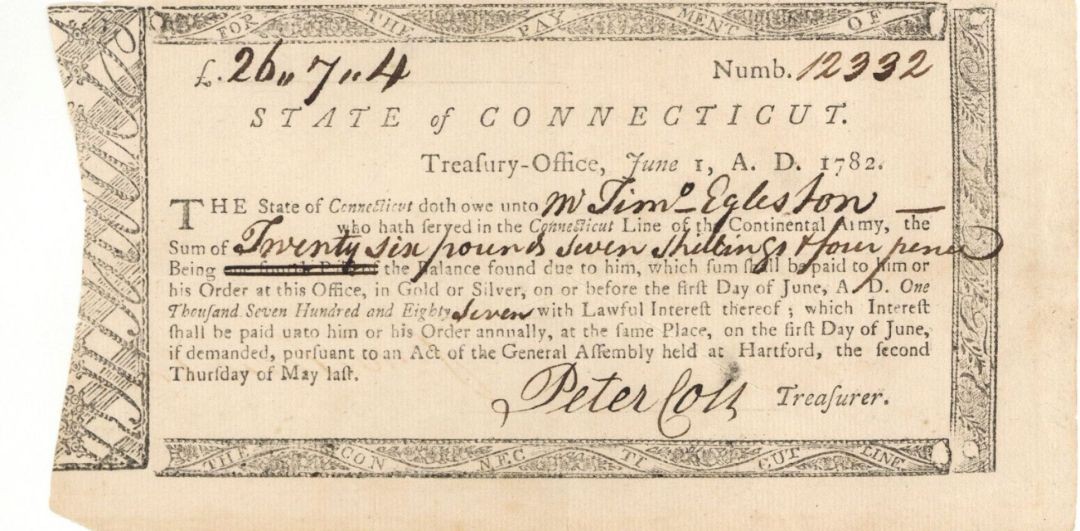 FOR THE PAY MENT OF
£. 26,, 7,, 4 Numb. 12332
STATE of CONNECTICUT.
Treaſury-Office, June 1, A. D. 1782.
THE State of Connecticut doth owe unto Mr Timo Egleston
who hath ſerved in the Connecticut Line of the Continental Army, the
Sum of Twenty six pounds seven shillings & four pence
Being the Balance found due to him, which ſum ſhall be paid to him or
his Order at this Office, in Gold or Silver, on or before the firſt Day of June, A. D. One
Thouſand Seven Hundred and Eighty Seven with Lawful Intereſt thereof ; which Intereſt
ſhall be paid unto him or his Order annually, at the ſame Place, on the firſt Day of June,
if demanded, purſuant to an Act of the General Aſſembly held at Hartford, the ſecond
Thurſday of May laſt.
Peter Colt Treaſurer.
THE CON NEC TI CUT LINE